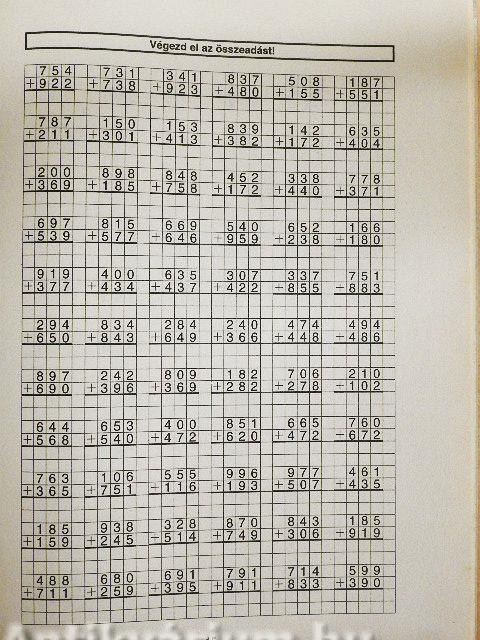 Végezd el az összeadást!
754 731 341 837 508 187
+922 +738 +923 +480 +155 +551
787 150 153 839 142 635
+211 +301 +413 +382 +172 +404
200 898 848 452 338 778
+369 +185 +758 +172 +440 +371
697 815 669 540 652 166
+539 +577 +646 +959 +238 +180
919 400 635 307 337 751
+377 +434 +437 +422 +855 +883
294 834 284 240 474 494
+650 +843 +649 +366 +448 +486
897 242 809 182 706 210
+690 +396 +369 +282 +278 +102
644 653 400 851 665 760
+568 +540 +472 +620 +472 +672
763 106 555 996 977 461
+365 +751 +116 +193 +507 +435
185 938 328 870 843 185
+159 +245 +514 +749 +306 +919
488 680 691 791 714 599
+711 +259 +395 +911 +833 +390